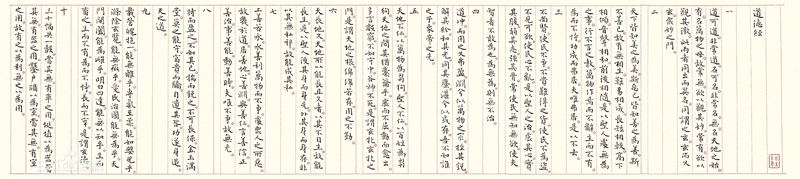 道德經
一
道可道非常道名可名非常名無名天地之始
有名萬物之母故常無欲以觀其妙常有欲以
觀其徼此兩者同出而異名同謂之玄玄而又
玄眾妙之門
二
天下皆知美之為美斯惡已皆知善之為善斯
不善已故有無相生難易相成長短相較高下
相傾音聲相和前後相隨是以聖人處無為
之事行不言之教萬物作焉而不辭生而不有
為而不恃功成而弗居夫唯弗居是以不去
三
不尚賢使民不爭不貴難得之貨使民不為盜
不見可欲使民心不亂是以聖人之治虛其心實
其腹弱其志強其骨常使民無知無欲使夫
智者不敢為也為無為則無不治
四
道沖而用之又弗盈淵兮似萬物之宗挫其銳
解其紛和其光同其塵湛兮似或存吾不知誰
之子象帝之先
五
天地不仁以萬物為芻狗聖人不仁以百姓為芻
狗天地之間其猶橐籥乎虛而不屈動而愈出
多言數窮不如守中谷神不死是謂玄牝玄牝之
門是謂天地之根綿綿若存用之不勤
六
天長地久天地所以能長且久者以其不自生故能
長生是以聖人後其身而身先外其身而身存非
以其無私邪故能成其私
七
上善若水水善利萬物而不爭處眾人之所惡
故幾於道居善地心善淵與善仁言善信正
善治事善能動善時夫唯不爭故無尤
八
持而盈之不如其已揣而銳之不可長保金玉滿
堂莫之能守富貴而驕自遺其咎功遂身退
天之道
九
載營魄抱一能無離乎專氣致柔能如嬰兒乎
滌除玄覽能無疵乎愛民治國能無為乎天
門開闔能為雌乎明白四達能無知乎生而
畜之生而不有為而不恃長而不宰是謂玄德
十
三十輻共一轂當其無有車之用埏埴以為器當
其無有器之用鑿戶牖以為室當其無有室
之用故有之以為利無之以為用